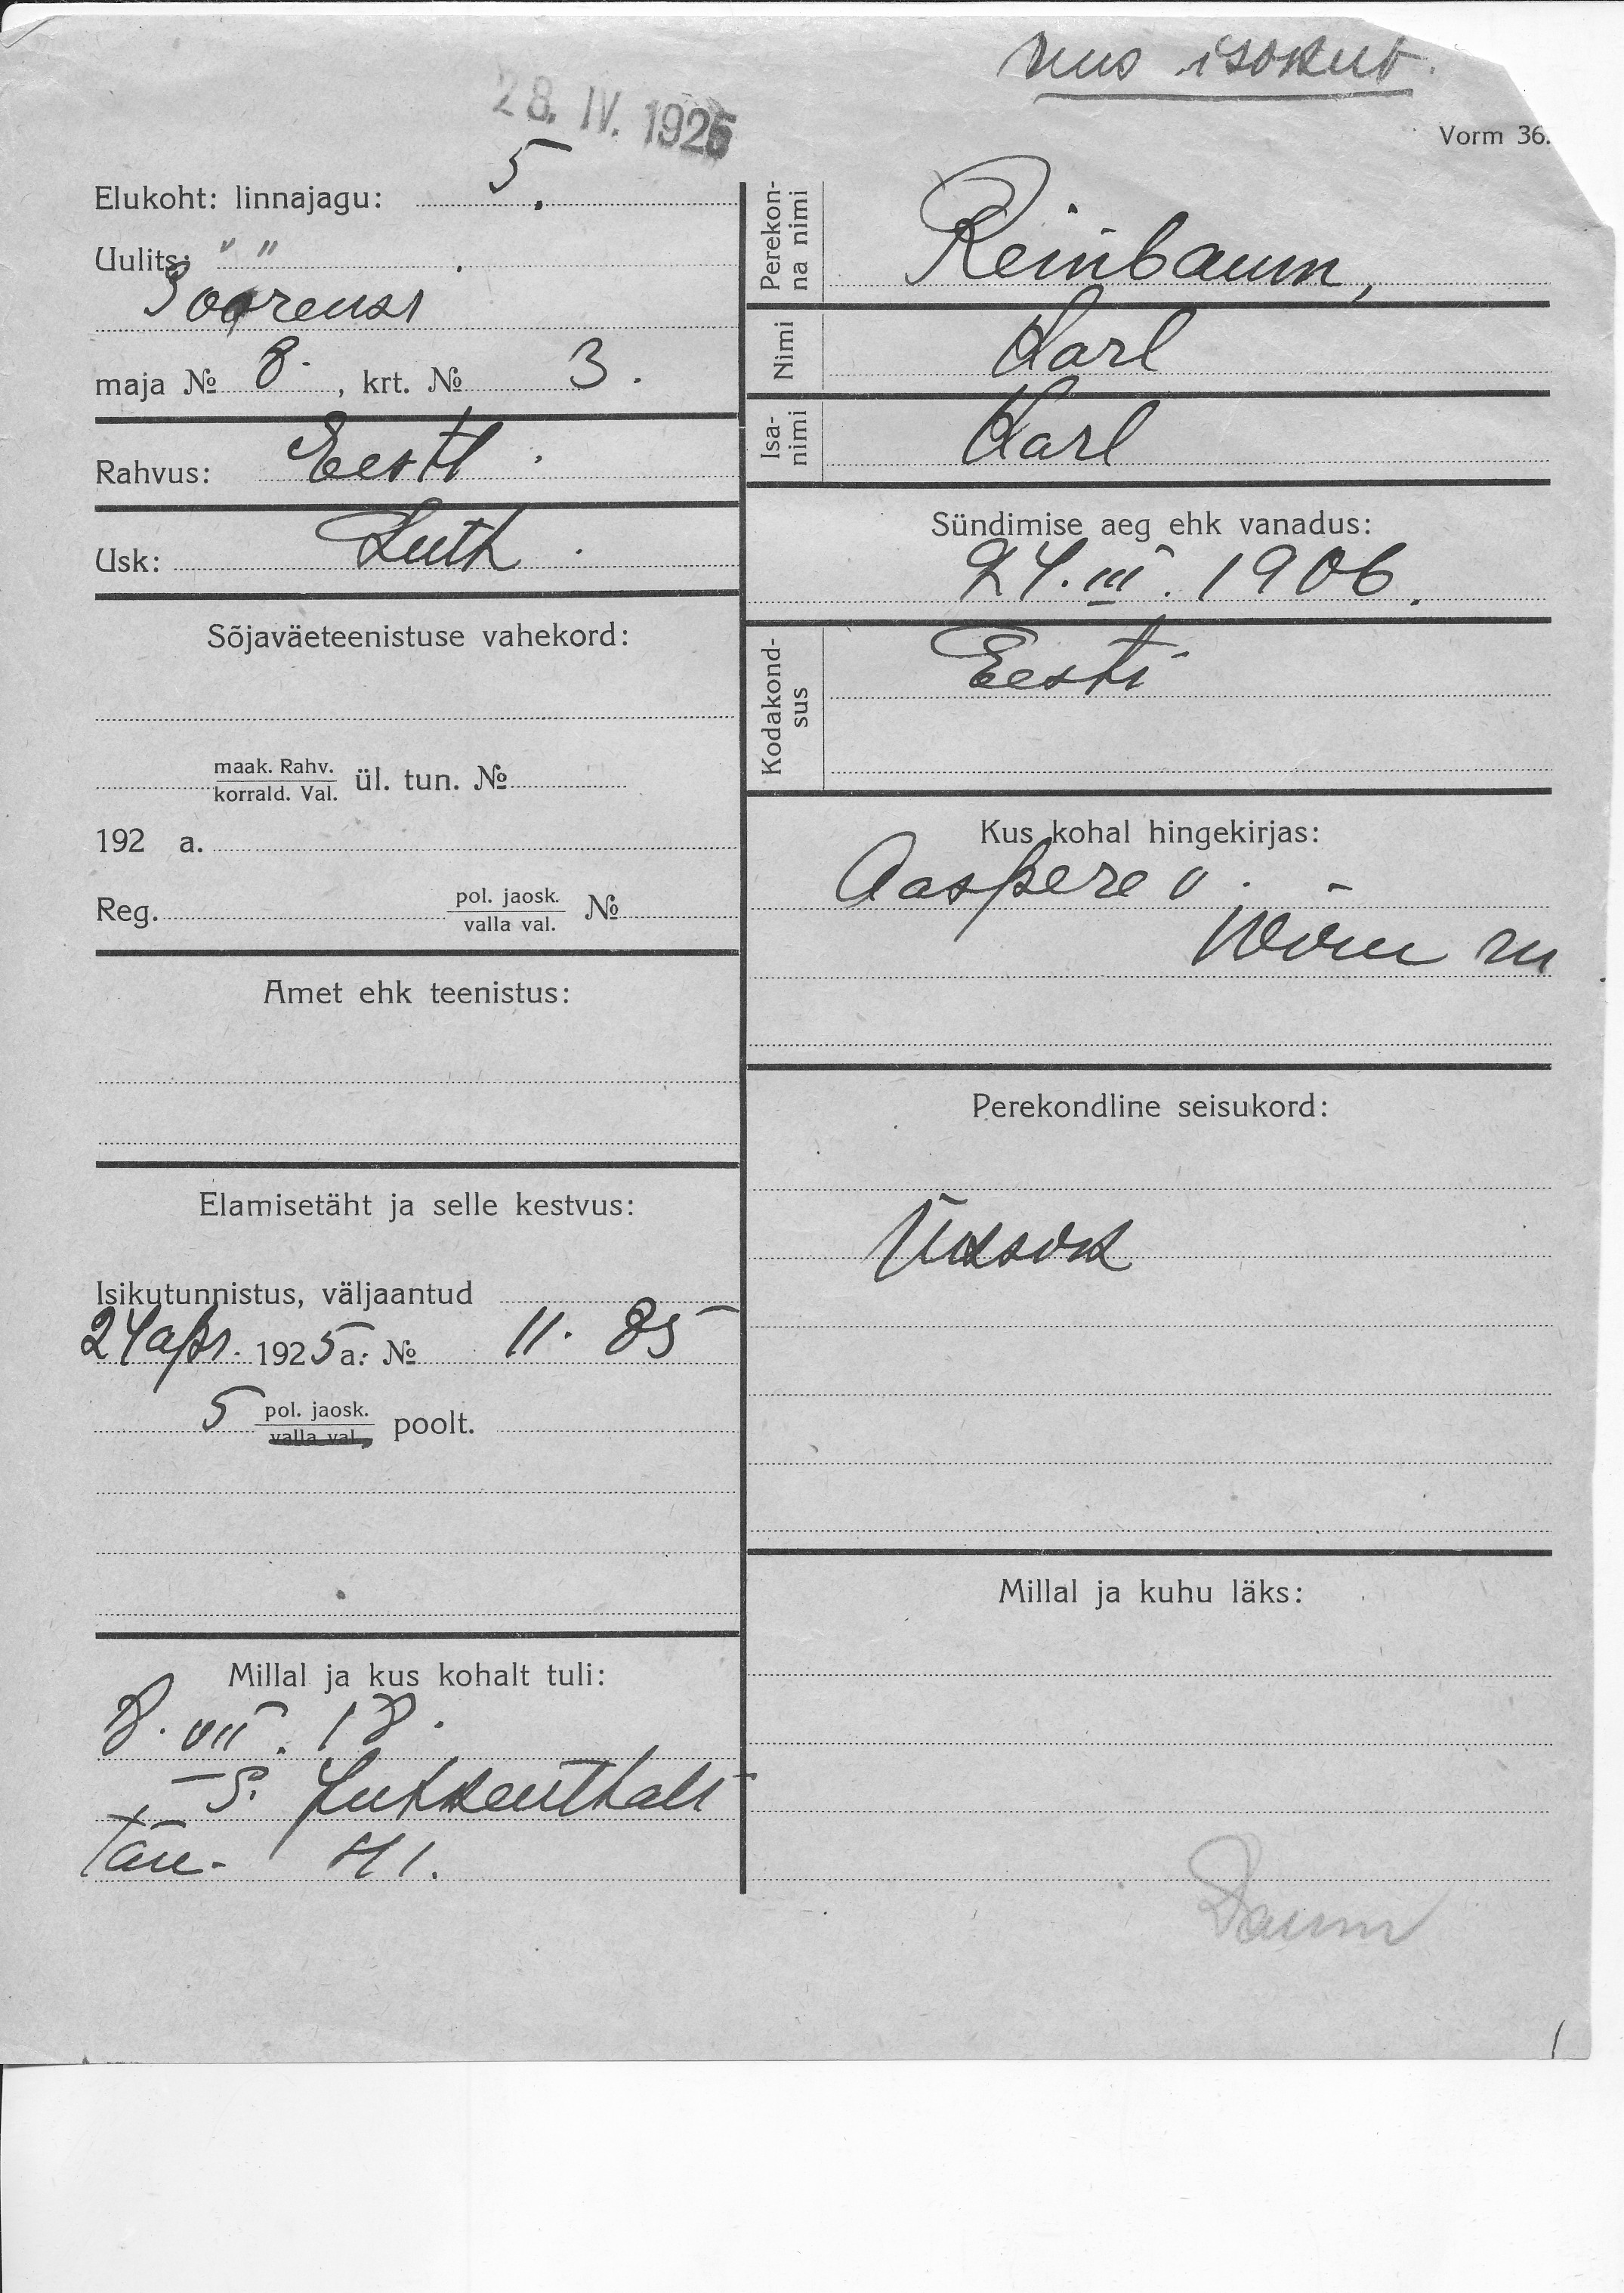 uus isokut.
28. IV. 1925
Vorm 36.
Elukoht: linnajagu: 5.
Uulits: " "
maja № 8. , krt. № 3.
Rahvus: Eesti.
Usk: Luth.
Sõjaväeteenistuse vahekord:
maak. Rahv.
korrald. Val. ül. tun. №
192 a.
Reg. pol. jaosk.
valla val. №
Amet ehk teenistus:
Elamisetäht ja selle kestvus:
Isikutunnistus, väljaantud
24 apr. 1925 a. № 11. 85
5 pol. jaosk.
valla val. poolt.
Millal ja kus kohalt tuli:
8. VII. 18.
41.
Perekon-
na nimi
Reinbaum,
Nimi
Karl
Isa-
nimi
Karl
Sündimise aeg ehk vanadus:
24. III. 1906.
Kodakond-
sus
Eesti
Kus kohal hingekirjas:
Aaspere v.
Wiru m
Perekondline seisukord:
Üksik
Millal ja kuhu läks: